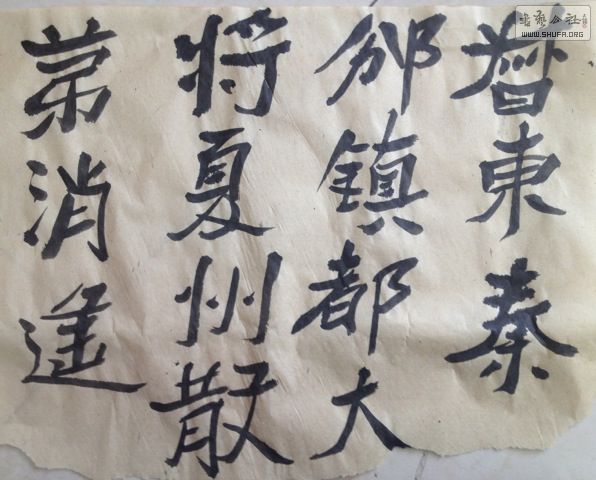 東秦
邠鎮都大
將夏州散
苐消遥
書藝公社
WWW.SHUFA.ORG